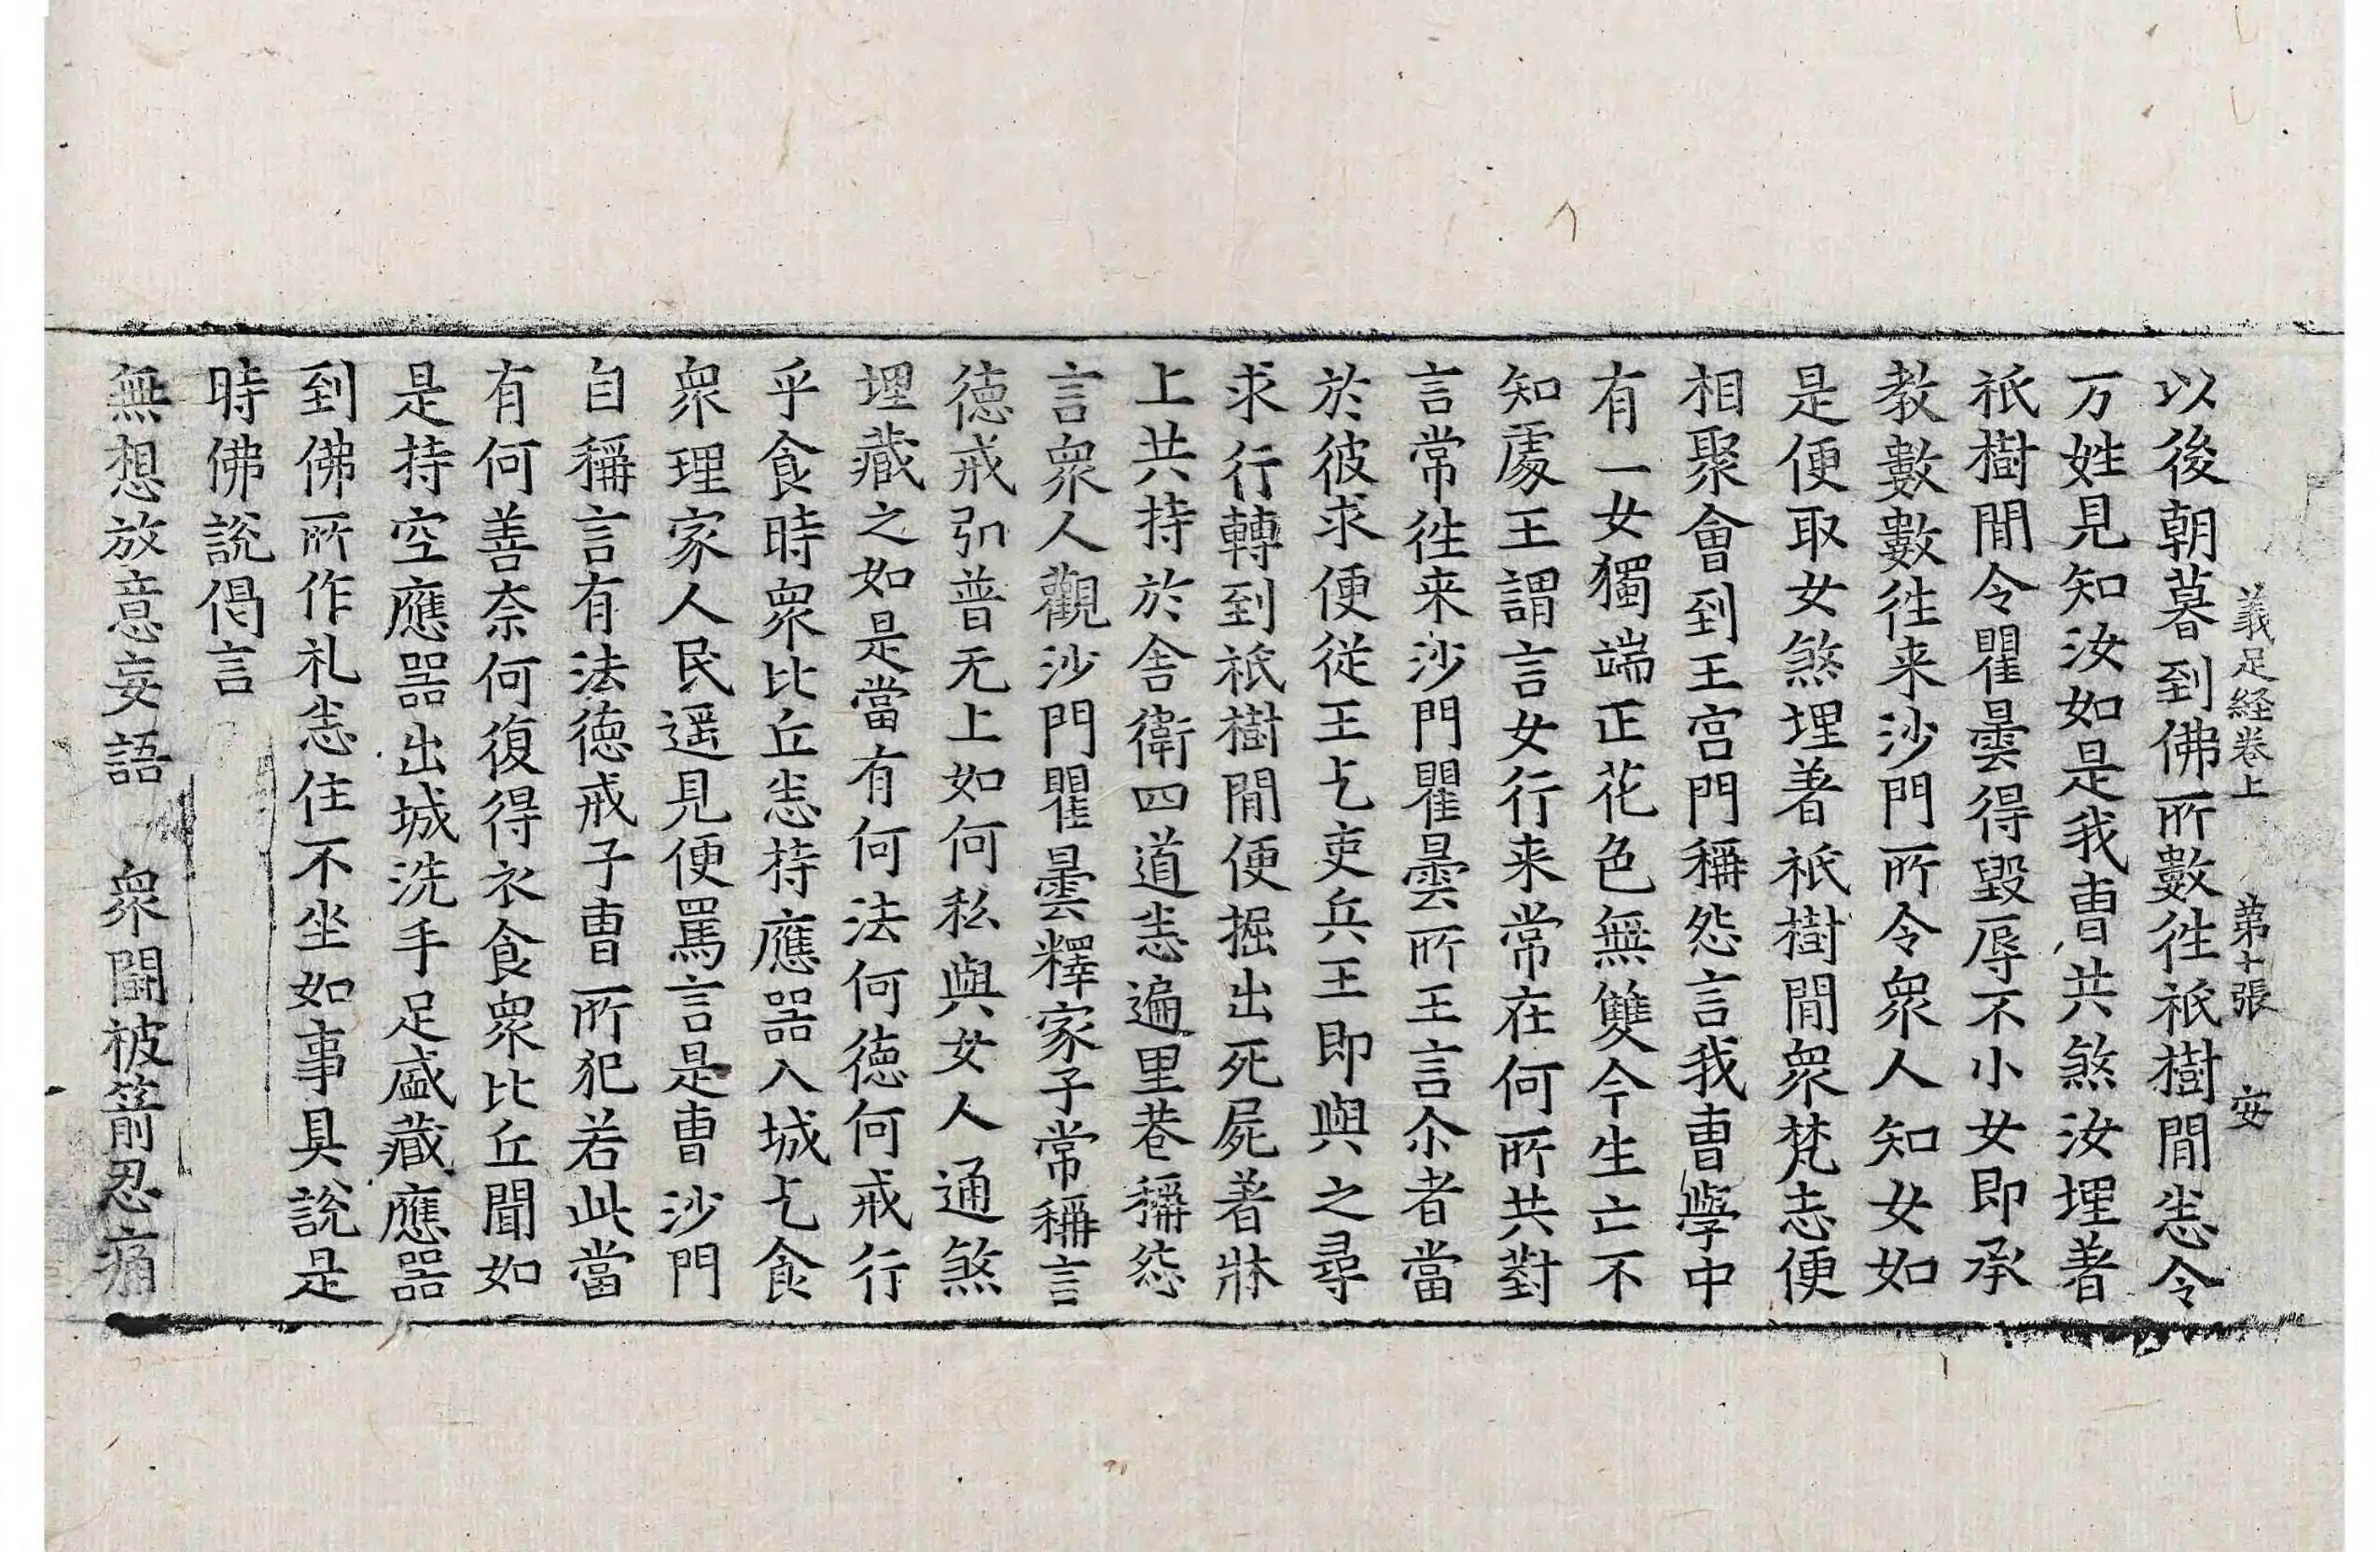 義足経卷上　第十張　安
以後朝暮到佛所數徃祇樹間恙令
万姓見知汝如是我曺共煞汝埋著
祇樹間令瞿曇得毀辱不小女即承
教數數徃来沙門所令衆人知女如
是便取女煞埋著祇樹間衆梵志便
相聚會到王宫門稱怨言我曺學中
有一女獨端正花色無雙今生亡不
知處王謂言女行来常在何所共對
言常徃来沙門瞿曇所王言尒者當
於彼求便從王乞吏兵王即與之尋
求行轉到祇樹間便掘出死屍著牀
上共持於舍衛四道恙遍里巷稱怨
言衆人觀沙門瞿曇釋家子常稱言
德戒弘普无上如何私與女人通煞
埋藏之如是當有何法何德何戒行
乎食時衆比丘恙持應器入城乞食
衆理家人民遥見便罵言是曺沙門
自稱言有法德戒子曺所犯若此當
有何善奈何復得衣食衆比丘聞如
是持空應器出城洗手足盛藏應器
到佛所作礼恙住不坐如事具說是
時佛說偈言
無想放意妄語　衆鬪被箭忍痛